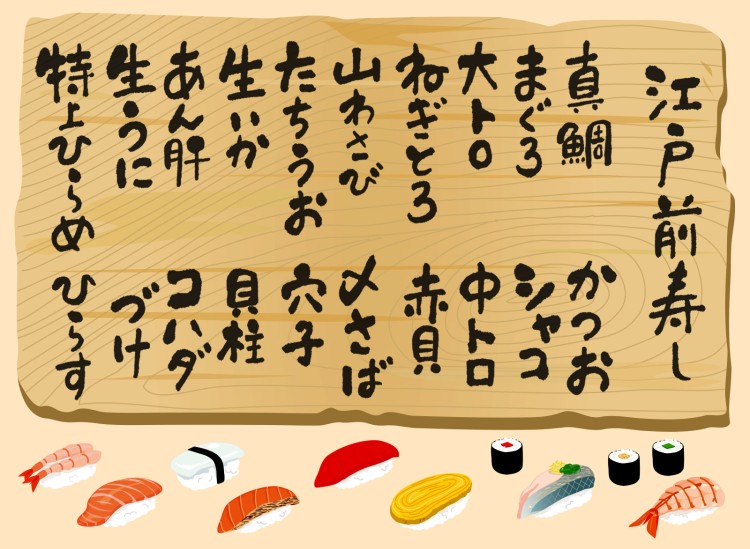 江戸前寿し
真鯛
まぐろ
大トロ
ねぎとろ
山わさび
たちうお
生いか
あん肝
生うに
特上ひらめ
かつお
シャコ
中トロ
赤貝
〆さば
穴子
貝柱
コハダ
づけ
ひらす